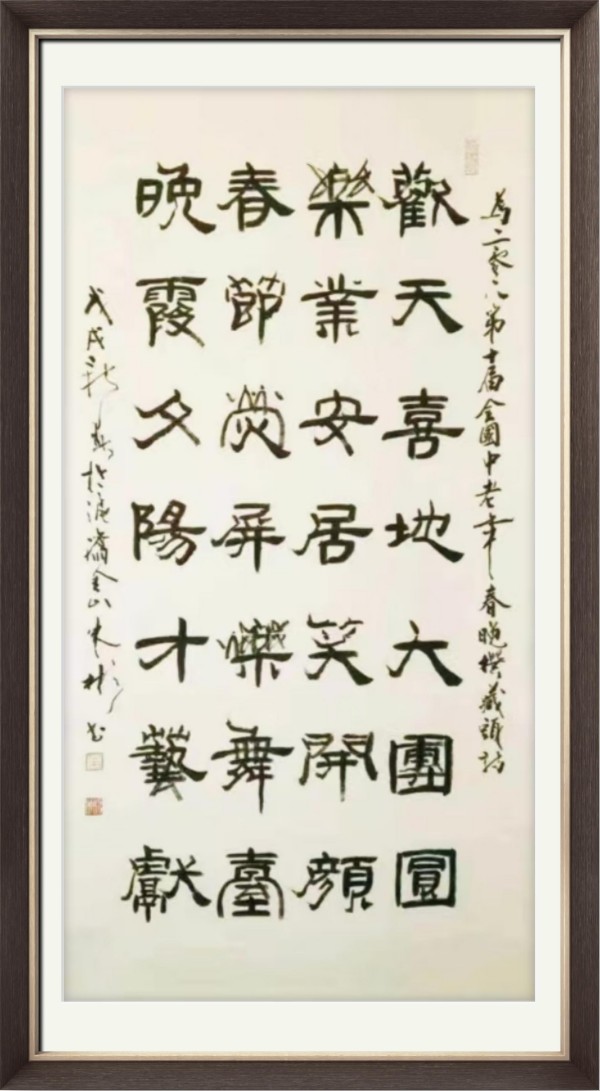 為二零一八第十届全國中老年春晚撰藏頭詩
歡天喜地大團圓
樂業安居笑開顏
春節熒屏爍舞臺
晚霞夕陽才藝獻
戊戌於滬金山朱彬書